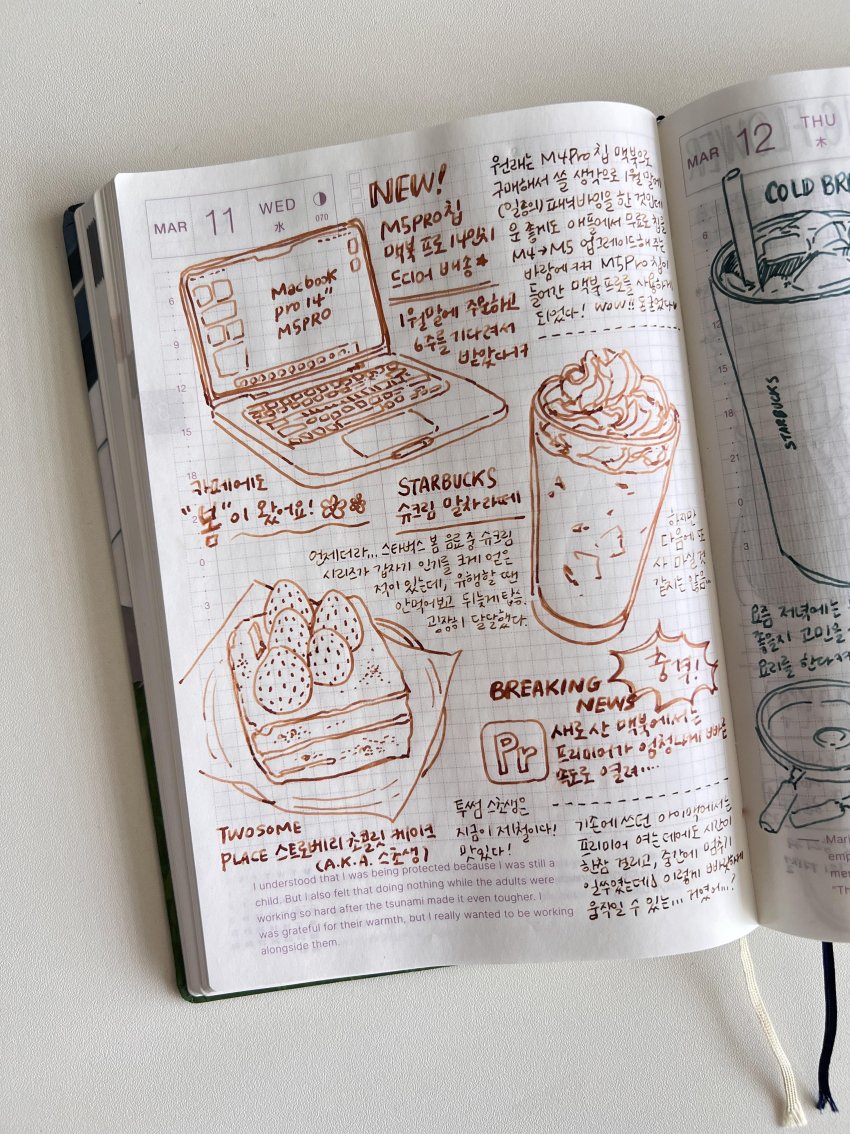 MAR 11 WED
水
070
NEW!
M5PRO칩
맥북 프로 14인치
드디어 배송★
1월말에 주문하고
6주를 기다려서
받았다ㅋㅋ
원래는 M4Pro 칩 맥북으로
구매해서 쓸 생각으로 1월 말에
(일종의) 패닉바잉을 한 것인데
운 좋게도 애플에서 무료로 칩을
M4→M5 업그레이드해주는
바람에 ㅋㅋ M5Pro 칩이
들어간 맥북 프로를 사용하게
되었다! wow!! 돈 벌었다
Macbook
pro 14"
M5PRO
6
9
12
15
0
3
카페에도
"봄"이 왔어요!
STARBUCKS
슈크림 말차라떼
언제더라... 스타벅스 봄 음료 중 슈크림
시리즈가 갑자기 인기를 크게 얻은
적이 있는데, 유행할 땐
안먹어보고 뒤늦게 탑승.
굉장히 달달했다.
하지만
다음에 또
사 마실 것
같지는 않음..
BREAKING
NEWS
충격!
Pr
새로 산 맥북에서는
프리미어가 엄청나게 빠른
속도로 열려....
기존에 쓰던 아이맥에서는
프리미어 여는데에도 시간이
한참 걸리고, 중간에 멈추기
일쑤였는데 이렇게 빠르게
움직일 수 있는... 거였어...?
TWOSOME
PLACE 스트로베리 초콜릿 케이크
(A.K.A. 스초생)
투썸 스초생은
지금이 제철이다!
맛있다!
I understood that I was being protected because I was still a
child. But I also felt that doing nothing while the adults were
working so hard after the tsunami made it even tougher. I
was grateful for their warmth, but I really wanted to be working
alongside them.
MAR 12 THU
木
COLD BR
STARBUCKS
6
12
15
18
21
0
3
요즘 저녁에는
좋을지 고민을
요리를 한다
Mari
emp
mer
"Th